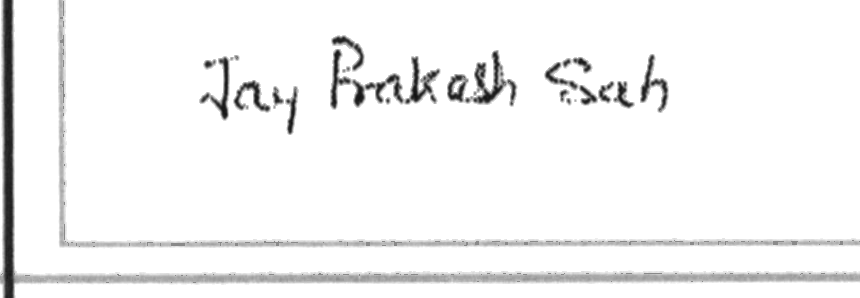 Jay Prakash Sah